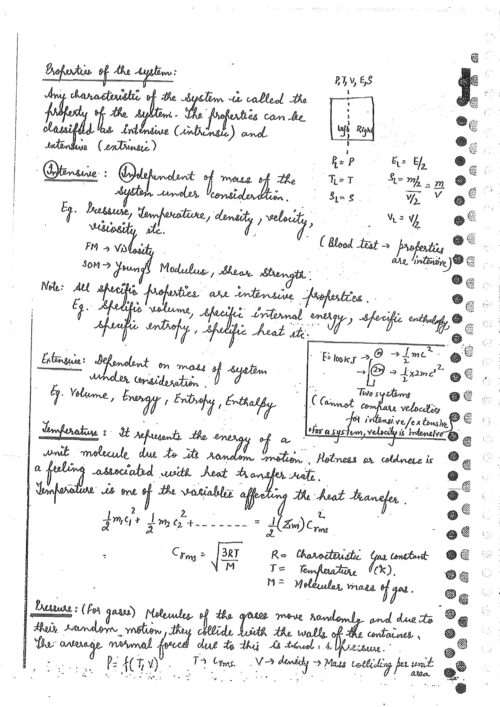 Properties of the system:
P, T, V, E, S
Any characteristic of the system is called the
property of the system. The properties can be
classified as intensive (intrinsic) and
extensive (extrinsic)
Left Right
P_L = P E_L = E/2
T_L = T S_L = m/2 / V/2 = m/V
S_L = S V_L = V/2
Intensive : Independent of mass of the
system under consideration.
Eg. Pressure, Temperature, density, velocity,
viscosity etc.
(Blood test → properties
are intensive)
FM → Viscosity
SOM → Young's Modulus, Shear Strength.
Note: All specific properties are intensive properties.
Eg. Specific volume, specific internal energy, specific enthalpy,
specific entropy, specific heat etc.
Extensive: Dependent on mass of system
under consideration.
Eg. Volume, Energy, Entropy, Enthalpy
E=100KJ → m → 1/2 mc²
→ 2m → 1/2 x2mc'²
Two systems
(Cannot compare velocities
for intensive/extensive)
for a system, velocity is intensive
Temperature: It represents the energy of a
unit molecule due to its random motion. Hotness or coldness is
a feeling associated with heat transfer rate.
Temperature is one of the variables affecting the heat transfer.
1/2 m₁c₁² + 1/2 m₂c₂² + -------- = 1/2 (Σm) C²rms
Crms = √3RT/M R = Characteristic Gas constant
T = Temperature (K).
M = Molecular mass of gas.
Pressure: (For gases) Molecules of the gases move randomly and due to
their random motion, they collide with the walls of the container.
The average normal force due to this is Pressure.
P = f(T, V) T → Crms V → density → Mass colliding per unit
area